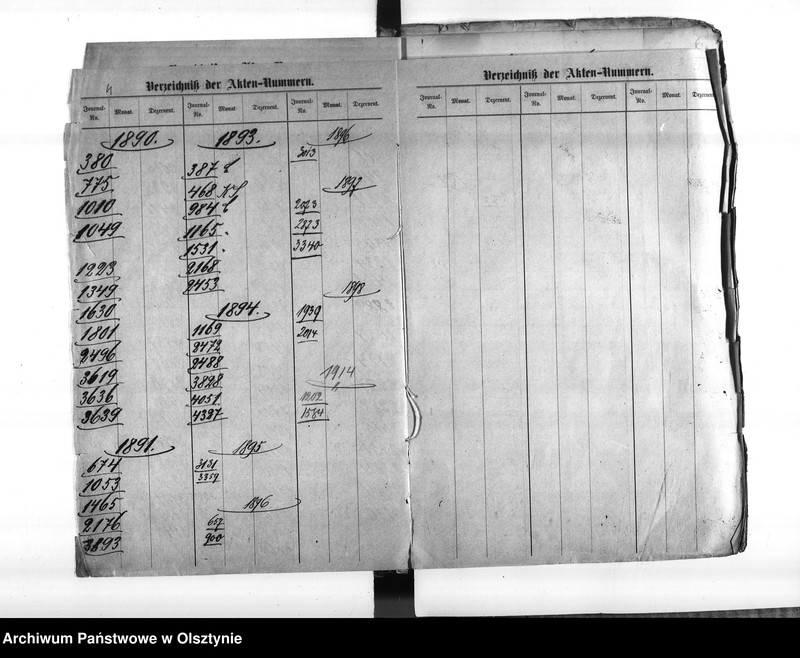 4
Verzeichniß der Akten-Nummern.
Journal-No. Monat. Dezernent. Journal-No. Monat Dezernent. Journal-No. Monat. Dezernent.
1890.
380
775
1010
1049
1223
1349
1630
1801
2496
3619
3636
3639
1891.
674
1053
1465
2176
3893
1893.
387
468
984
1165
1531
2168
2453
1894.
1169
2472
2488
3828
4051
4387
1895
3131
3359
1896
657
900
1896
2013
1897
2073
2873
3340
1898
1939
2014
1914
1202
1584
Verzeichniß der Akten-Nummern.
Journal-No. Monat. Dezernent. Journal-No. Monat. Dezernent. Journal-No. Monat. Dezernent
Archiwum Państwowe w Olsztynie